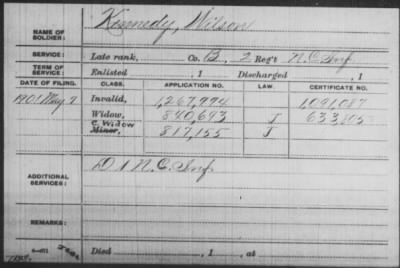 Kennedy, Wilson
NAME OF SOLDIER:
SERVICE: Late rank, Co. B, 2 Reg't N.C. Inf.
TERM OF SERVICE: Enlisted , 1 Discharged , 1
DATE OF FILING. CLASS. APPLICATION NO. LAW. CERTIFICATE NO.
1901 May 9 Invalid, 1,267,994 1,091,087
Widow, 840,693 J 633,805
C. Widow
Minor, 817,155 J
ADDITIONAL SERVICES: D 1 N.C. Inf.
REMARKS:
Died , 1 , at